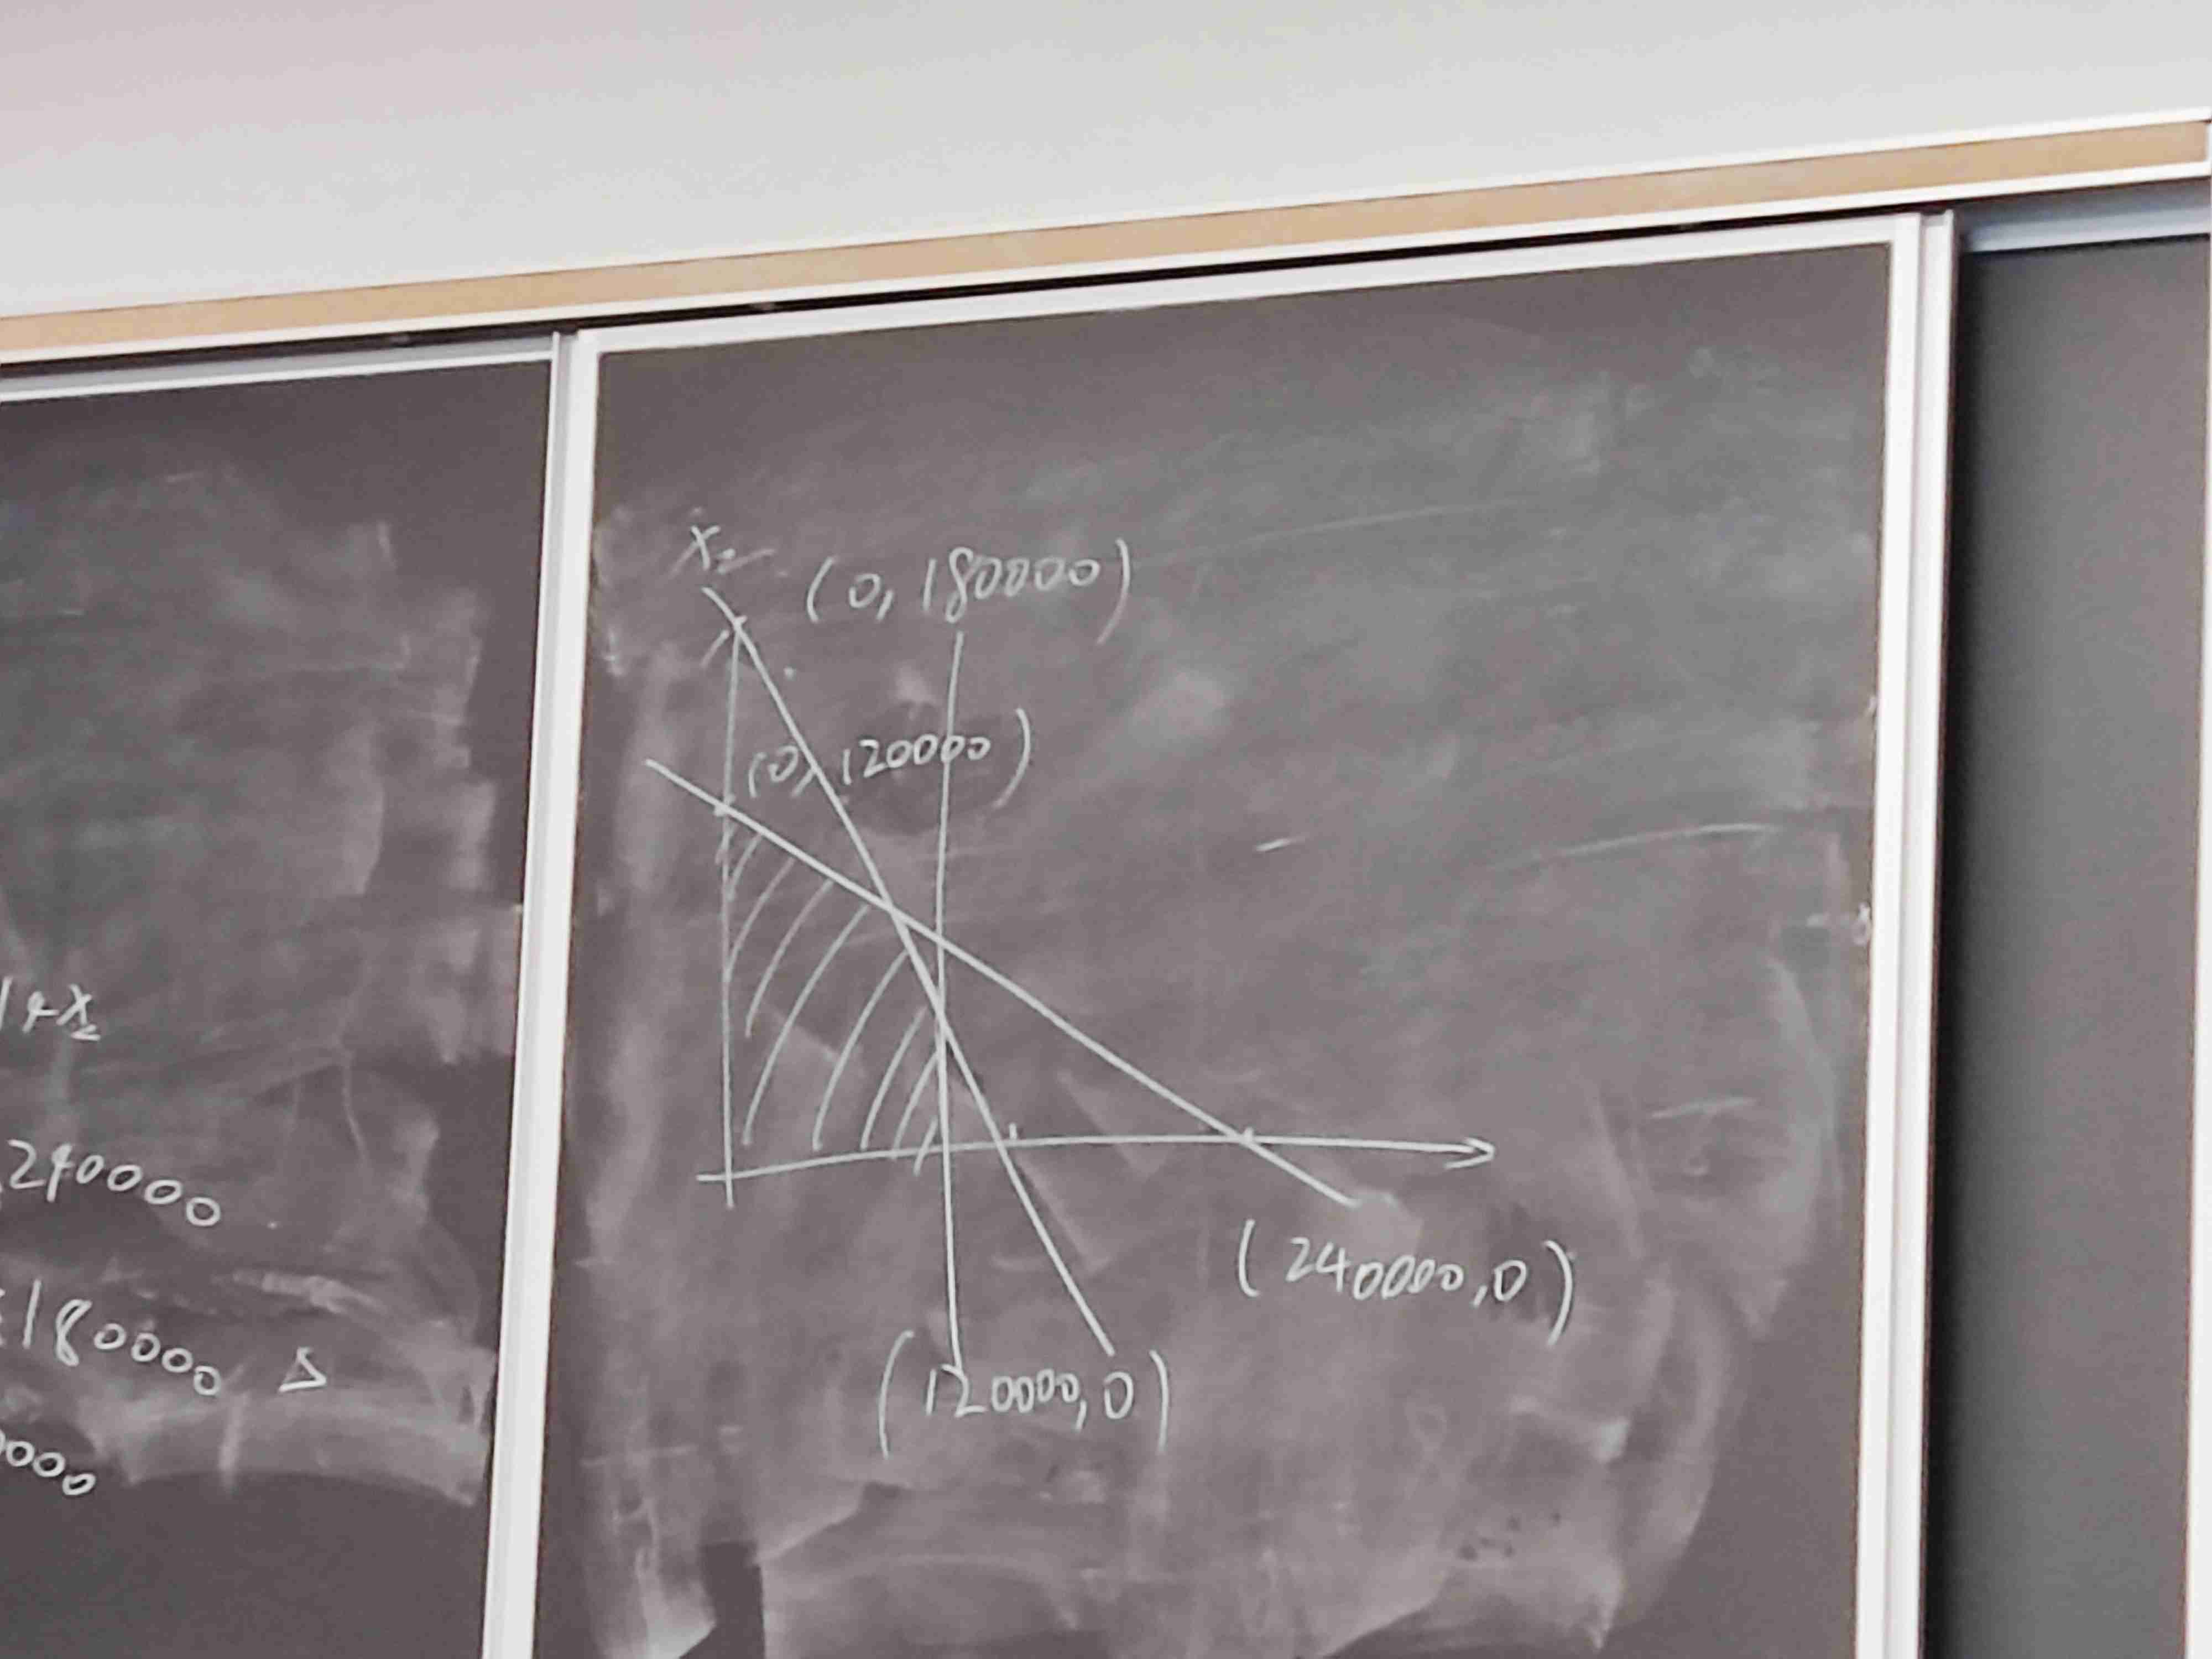 1+x₂
240000
≤180000 Δ
0000
x₂
(0, 180000)
(0, 120000)
(240000, 0)
(120000, 0)